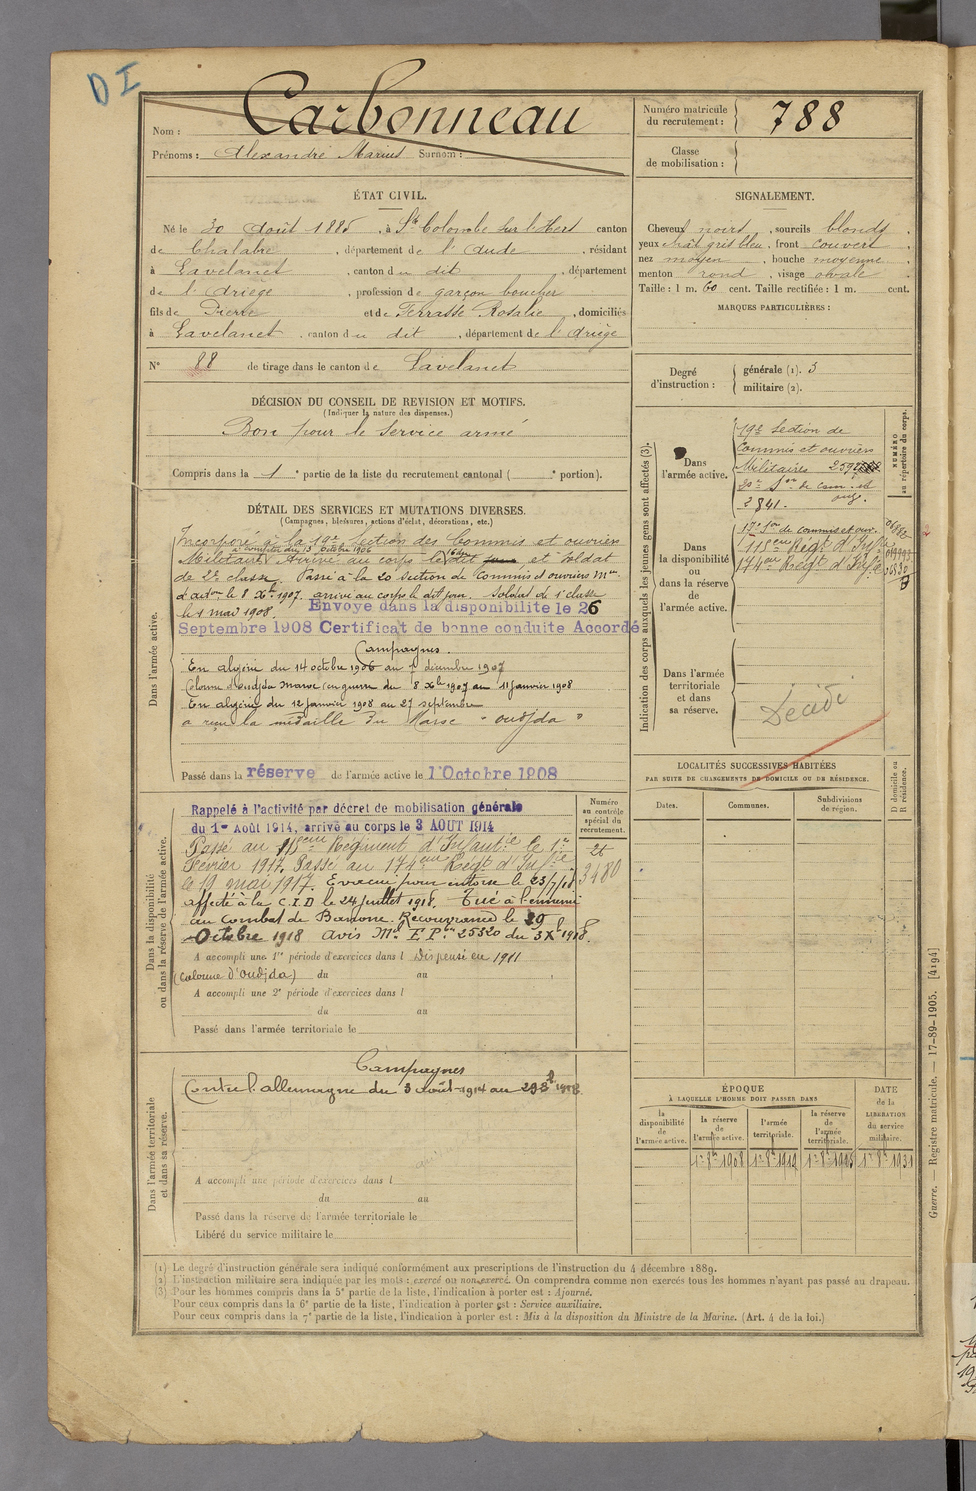 D I
Nom : Carbonneau
Prénoms : Alexandre Marius Surnom :
Numéro matricule du recrutement : 788
Classe de mobilisation :
ÉTAT CIVIL.
Né le 30 Août 1885, à Ste Colombe sur l'Hers canton
de Chalabre, département de l'Aude, résidant
à Lavelanet, canton du dit, département
de l'Ariège, profession de garçon boucher
fils de Pierre et de Terrasse Rosalie, domiciliés
à Lavelanet, canton du dit, département de l'Ariège
N° 88 de tirage dans le canton de Lavelanet
SIGNALEMENT.
Cheveux noirs, sourcils blonds,
yeux chât gris bleu, front couvert,
nez moyen, bouche moyenne,
menton rond, visage ovale.
Taille : 1 m. 60 cent. Taille rectifiée : 1 m. cent.
MARQUES PARTICULIÈRES :
Degré d'instruction :
générale (1). 3
militaire (2).
DÉCISION DU CONSEIL DE REVISION ET MOTIFS.
(Indiquer la nature des dispenses.)
Bon pour le service armé
Compris dans la 1e partie de la liste du recrutement cantonal ( e portion).
DÉTAIL DES SERVICES ET MUTATIONS DIVERSES.
(Campagnes, blessures, actions d'éclat, décorations, etc.)
Dans l'armée active.
Incorporé à la 19e Section des Commis et ouvriers
à compter du 13 octobre 1906
Militaires Arrivé au corps le dit et soldat
de 2e classe. Passé à la 20 section de Commis et ouvriers Mres
d'adon le 8 Xbre 1907. arrivé au corps le dit jour. Soldat de 1e classe
le 1 mai 1908. Envoyé dans la disponibilité le 26
Septembre 1908 Certificat de bonne conduite Accordé
Campagnes.
En algérie du 14 octobre 1906 au 7 décembre 1907
Colonne d'oudjda Maroc en guerre du 8 Xbre 1907 au 11 janvier 1908
En algérie du 12 janvier 1908 au 27 septembre
a reçu la médaille du Maroc "oudjda"
Passé dans la réserve de l'armée active le 1 Octobre 1908
Indication des corps auxquels les jeunes gens sont affectés (3).
NUMÉRO au répertoire du corps.
Dans l'armée active.
19e Section de
Commis et ouvriers
Militaires 2592
20e Son de com. et ouv.
2841.
Dans la disponibilité ou dans la réserve de l'armée active.
17e Son de commis et ouv.
115eme Régt d'Infie
174eme Régt d'Infie
Dans l'armée territoriale et dans sa réserve.
Décédé
Dans la disponibilité ou dans la réserve de l'armée active.
Numéro au contrôle spécial du recrutement.
Rappelé à l'activité par décret de mobilisation générale
du 1er Août 1914, arrivé au corps le 3 AOUT 1914
Passé au 115eme Régiment d'Infanterie le 1er
Février 1917. Passé au 174eme Régt d'Infie
le 19 mai 1917. Evacué pour entorse le 23/7/18
3480
affecté à la C.I.D le 24 juillet 1918. Tué à l'ennemi
au combat de Banone. Recouvrance le 29
Octobre 1918 Avis Mel F Pon 25320 du 3 Xbre 1918.
A accompli une 1re période d'exercices dans l Dispensé en 1911
(Colonne d'Oudjda) du au
A accompli une 2e période d'exercices dans l
du au
Passé dans l'armée territoriale le
LOCALITÉS SUCCESSIVES HABITÉES
PAR SUITE DE CHANGEMENTS DE DOMICILE OU DE RÉSIDENCE.
Dates. Communes. Subdivisions de région. D domicile ou R résidence.
Dans l'armée territoriale et dans sa réserve.
Campagnes
Contre l'allemagne du 3 août 1914 au 29 8bre 1918
A accompli une période d'exercices dans l
du au
Passé dans la réserve de l'armée territoriale le
Libéré du service militaire le
ÉPOQUE
À LAQUELLE L'HOMME DOIT PASSER DANS
la disponibilité de l'armée active. la réserve de l'armée active. l'armée territoriale. la réserve de l'armée territoriale.
DATE de la LIBÉRATION du service militaire.
1er 8bre 1908 1er 8bre 1919 1er 8bre 1925 1er 8bre 1931
(1) Le degré d'instruction générale sera indiqué conformément aux prescriptions de l'instruction du 4 décembre 1889.
(2) L'instruction militaire sera indiquée par les mots : exercé ou non exercé. On comprendra comme non exercés tous les hommes n'ayant pas passé au drapeau.
(3) Pour les hommes compris dans la 5e partie de la liste, l'indication à porter est : Ajourné.
Pour ceux compris dans la 6e partie de la liste, l'indication à porter est : Service auxiliaire.
Pour ceux compris dans la 7e partie de la liste, l'indication à porter est : Mis à la disposition du Ministre de la Marine. (Art. 4 de la loi.)
Guerre. — Registre matricule. — 17-89-1905. [4194]